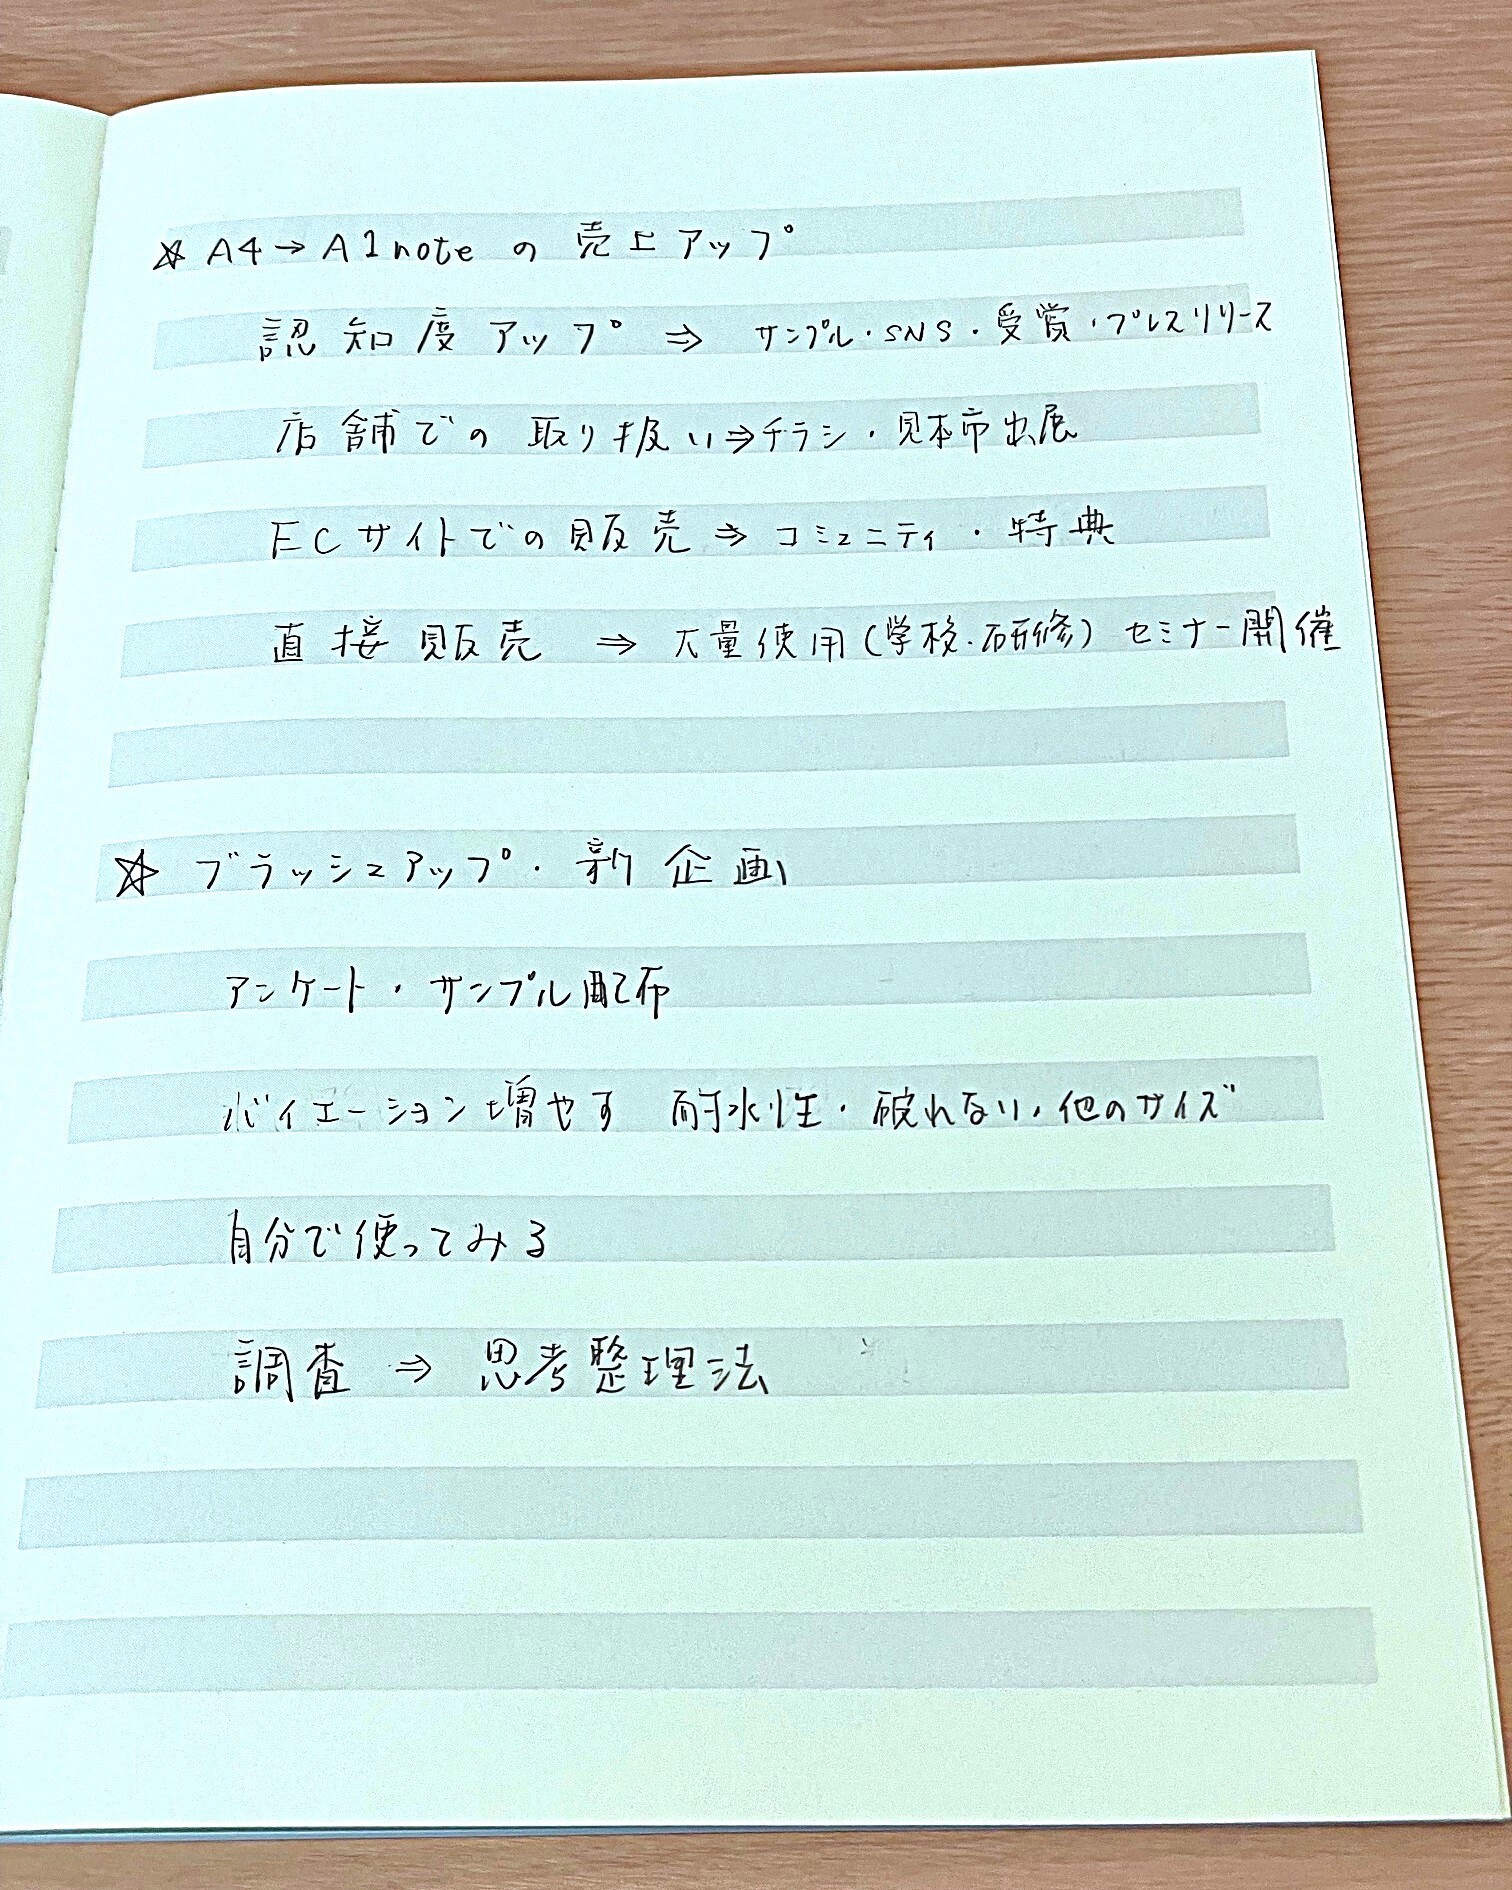 ☆ A4→A1noteの売上アップ
認知度アップ ⇒ サンプル・SNS・受賞・プレスリリース
店舗での取り扱い⇒チラシ・見本市出展
ECサイトでの販売 ⇒ コミュニティ・特典
直接販売 ⇒ 大量使用(学校・研修) セミナー開催
☆ ブラッシュアップ・新企画
アンケート・サンプル配布
バイエーション増やす 耐水性・破れない・他のサイズ
自分で使ってみる
調査 ⇒ 思考整理法